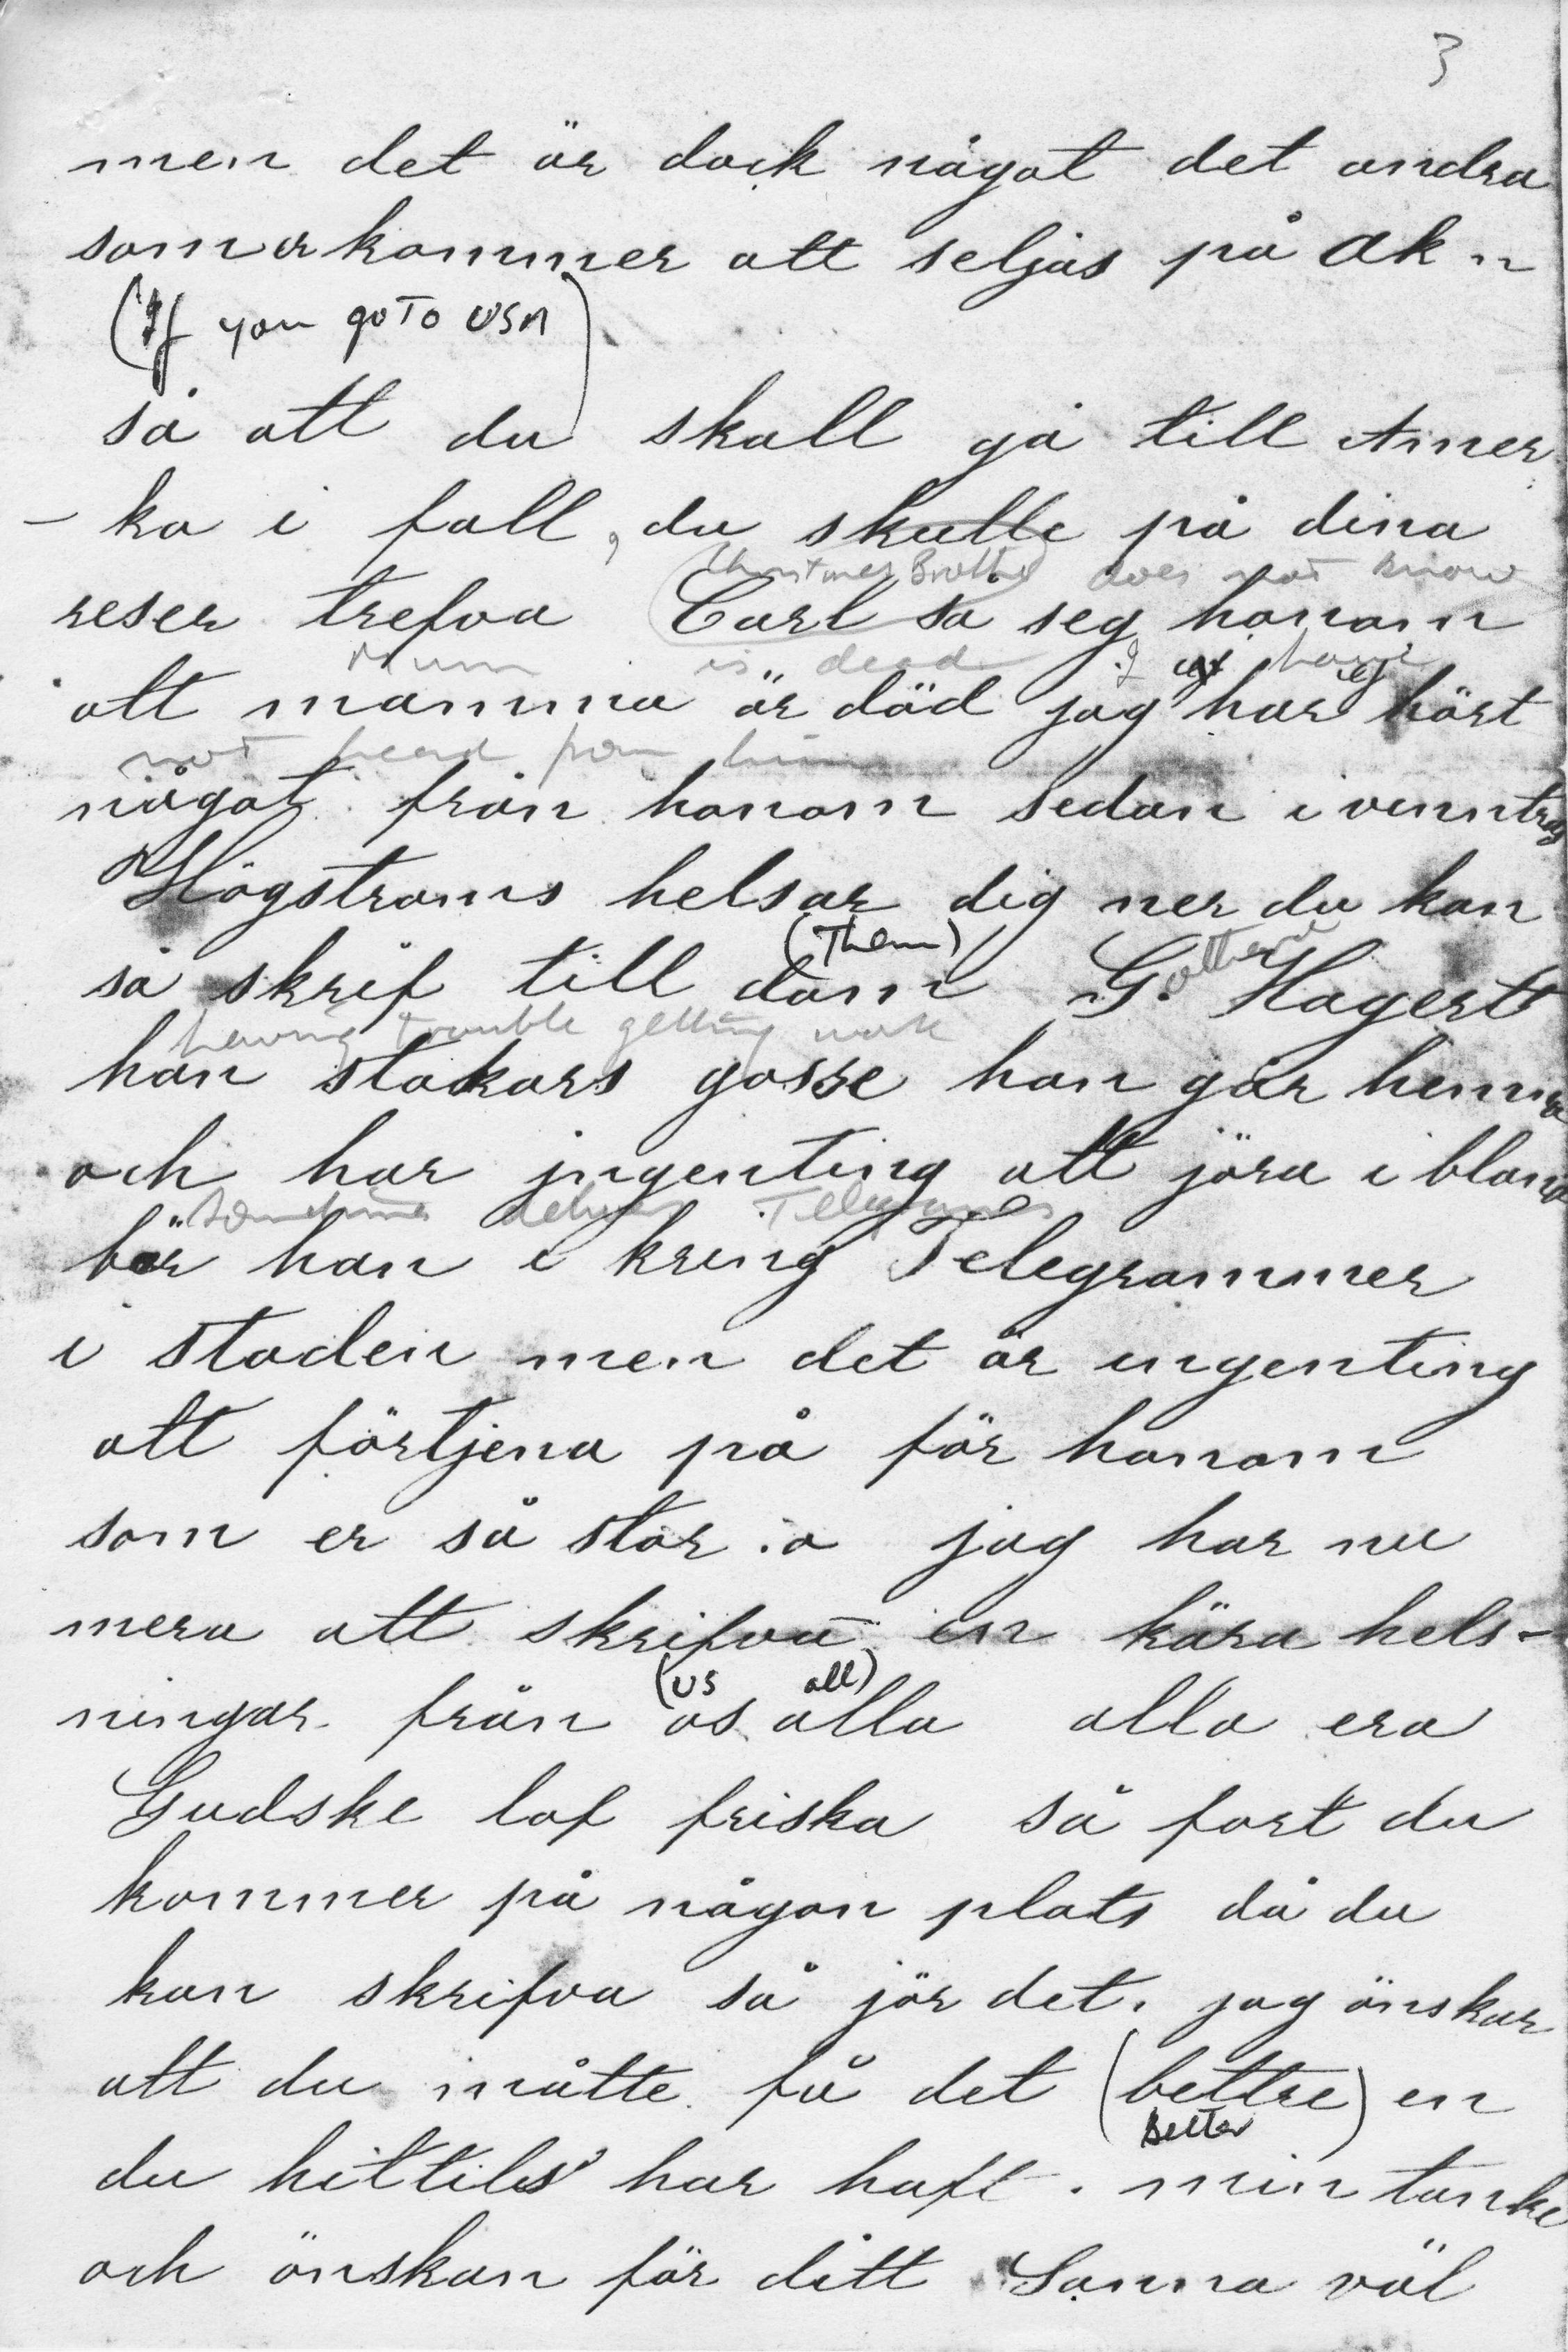 3
men det är dock något det andra
som er kommer att seljas på Ak n
(If you go to USA)
så att du skall gå till Amer
- ka i fall, du skulle på dina
Brother does not know
reser trefva Carl sa seg honom
Mum is dead I have
att mamma är död jag har ej hört
not heard from him
något från honom sedan i venntras
Högstroms helsar dig ner du kan
(Them)
så skrif till dom G. Hagert
having trouble getting work
han stakars gosse han går hemma
och har jngenting att jöra i bland
Sometimes delivers Telegrames
bär han i kring Telegrammer
i staden men det är ingenting
att förtjena på för honom
som er så stor .a jag har nu
mera att skrifva en kära hels-
(us all)
ningar från os alla alla era
Gudske lof friska så fort du
kommer på någon plats då du
kan skrifva så jör det. jag önskar
att du måtte få det (bettre) en
Better
du hittils har haft. min tanke
och önskan för ditt Sanna väl